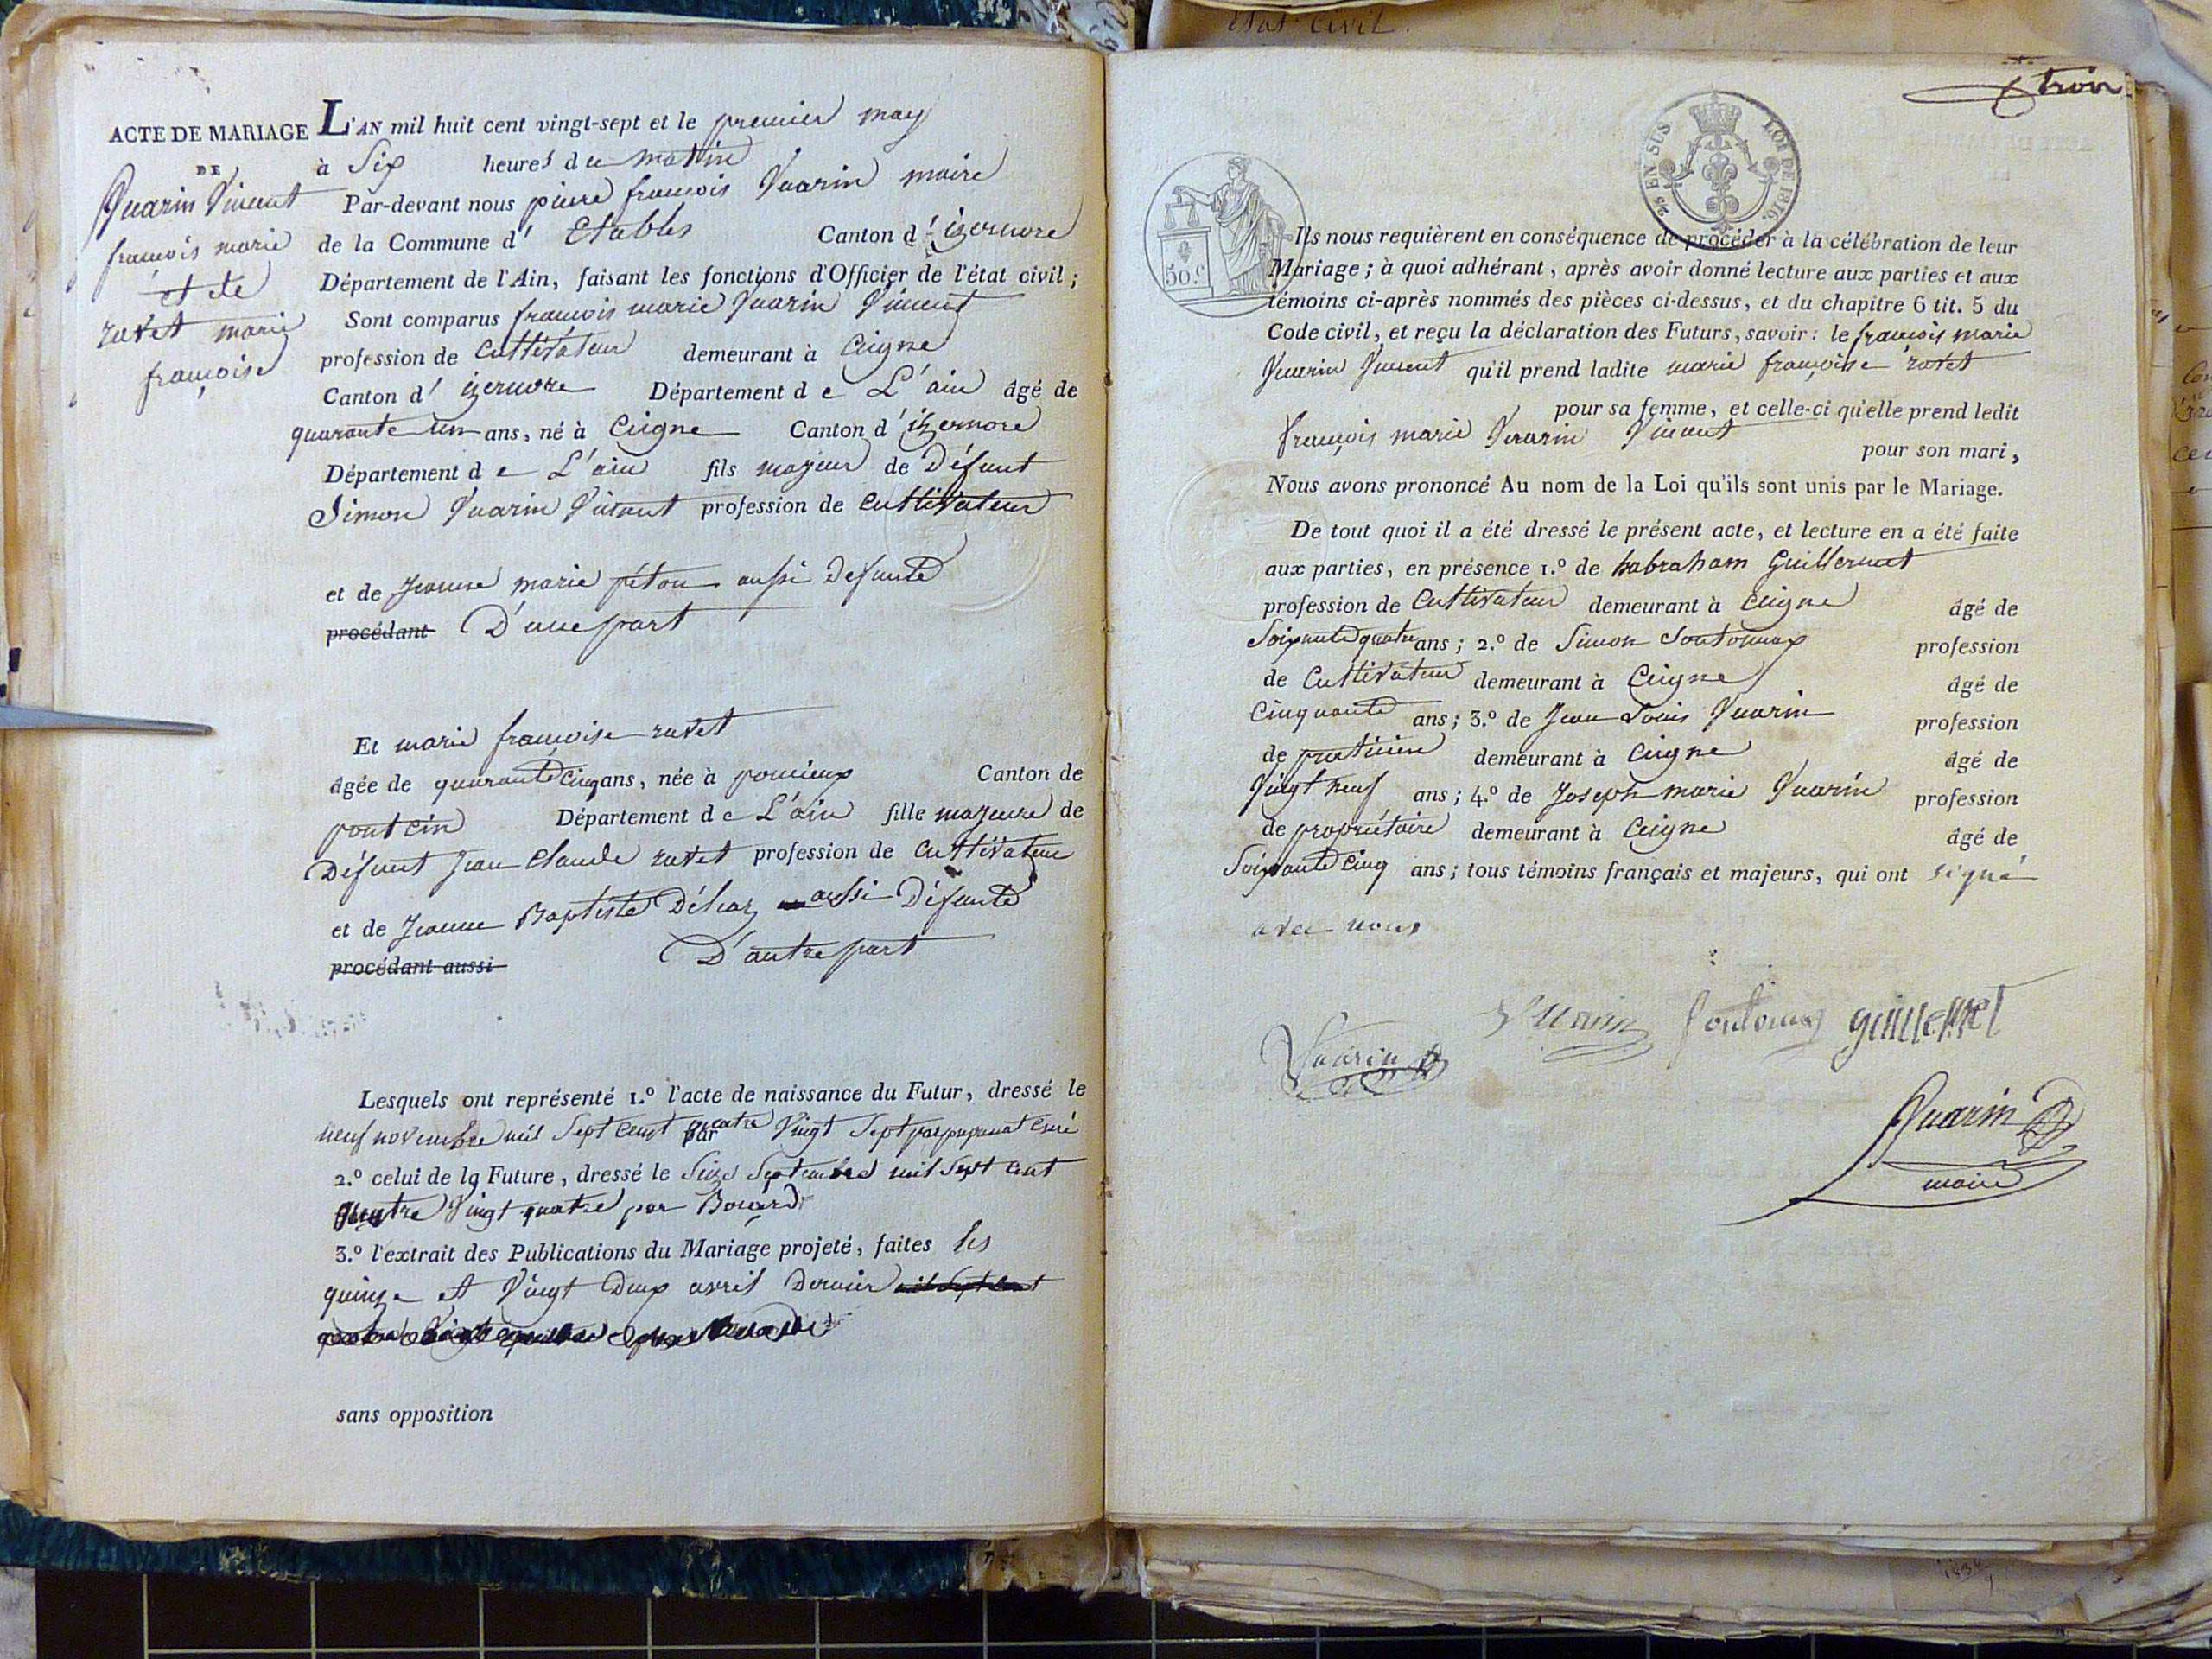 Etat Civil.
ACTE DE MARIAGE
DE
Quarin Vincent
françois marie
et de
ravet marie
françoise
L'AN mil huit cent vingt-sept et le premier may
à Six heures du matin
Par-devant nous pierre françois Quarin maire
de la Commune d' Etables Canton d' izernore
Département de l'Ain, faisant les fonctions d'Officier de l'état civil ;
Sont comparus françois marie Quarin Vincent
profession de Cultivateur demeurant à Ceigne
Canton d' izernore Département d e L'ain âgé de
quarante un ans, né à Ceigne Canton d' izernore
Département d e L'ain fils majeur de Défunt
Simon Quarin Vincent profession de Cultivateur
et de Jeanne marie péton aussi Defunte
procédant D'une part
Et marie françoise ravet
âgée de quarante Cinq ans, née à poncieux Canton de
pont cin Département d e L'ain fille majeure de
Défunt Jean Claude ravet profession de Cultivateur
et de Jeanne Baptiste aussi Défunte
procédant aussi D'autre part
Lesquels ont représenté 1.º l'acte de naissance du Futur, dressé le
neuf novembre mil Sept Cent quatre Vingt Sept par Curé
par
2.º celui de la Future, dressé le Septembre mil Sept Cent
quatre Vingt quatre par Bouard
3.º l'extrait des Publications du Mariage projeté, faites les
quinze et Vingt Deux avril Dernier
sans opposition
trois
25 EN SUS LOI DE 1816.
50.c
Ils nous requièrent en conséquence de procéder à la célébration de leur
Mariage ; à quoi adhérant, après avoir donné lecture aux parties et aux
témoins ci-après nommés des pièces ci-dessus, et du chapitre 6 tit. 5 du
Code civil, et reçu la déclaration des Futurs, savoir : le françois marie
Quarin Vincent qu'il prend ladite marie françoise ravet
pour sa femme, et celle-ci qu'elle prend ledit
françois marie Quarin Vincent
pour son mari,
Nous avons prononcé Au nom de la Loi qu'ils sont unis par le Mariage.
De tout quoi il a été dressé le présent acte, et lecture en a été faite
aux parties, en présence 1.º de habraham Guillermet
profession de Cultivateur demeurant à Ceigne âgé de
Soixante quatre ans ; 2.º de Simon Soutonnax profession
de Cultivateur demeurant à Ceigne âgé de
Cinquante ans ; 3.º de Jean Louis Quarin profession
de praticien demeurant à Ceigne âgé de
Vingt neuf ans ; 4.º de Joseph marie Quarin profession
de propriétaire demeurant à Ceigne âgé de
Soixante Cinq ans ; tous témoins français et majeurs, qui ont signé
avec nous
Quarin Quarin Soutonnax guillermet
Quarin
maire